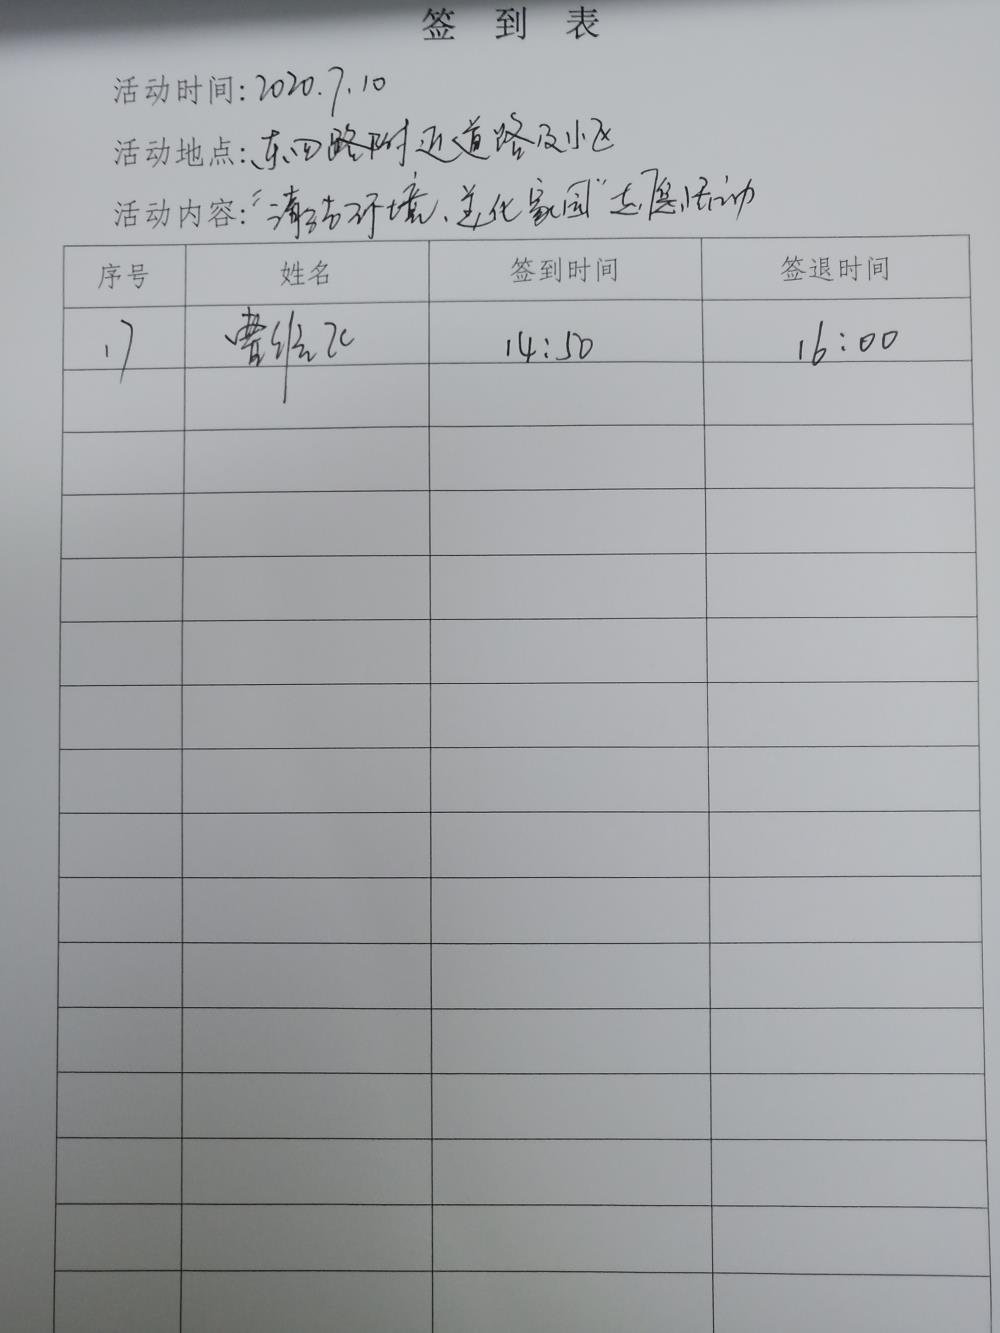 签 到 表
活动时间:2020.7.10
活动地点:东四路附近道路及小区
活动内容:"清洁环境、美化家园"志愿活动
序号 姓名 签到时间 签退时间
17 14:50 16:00